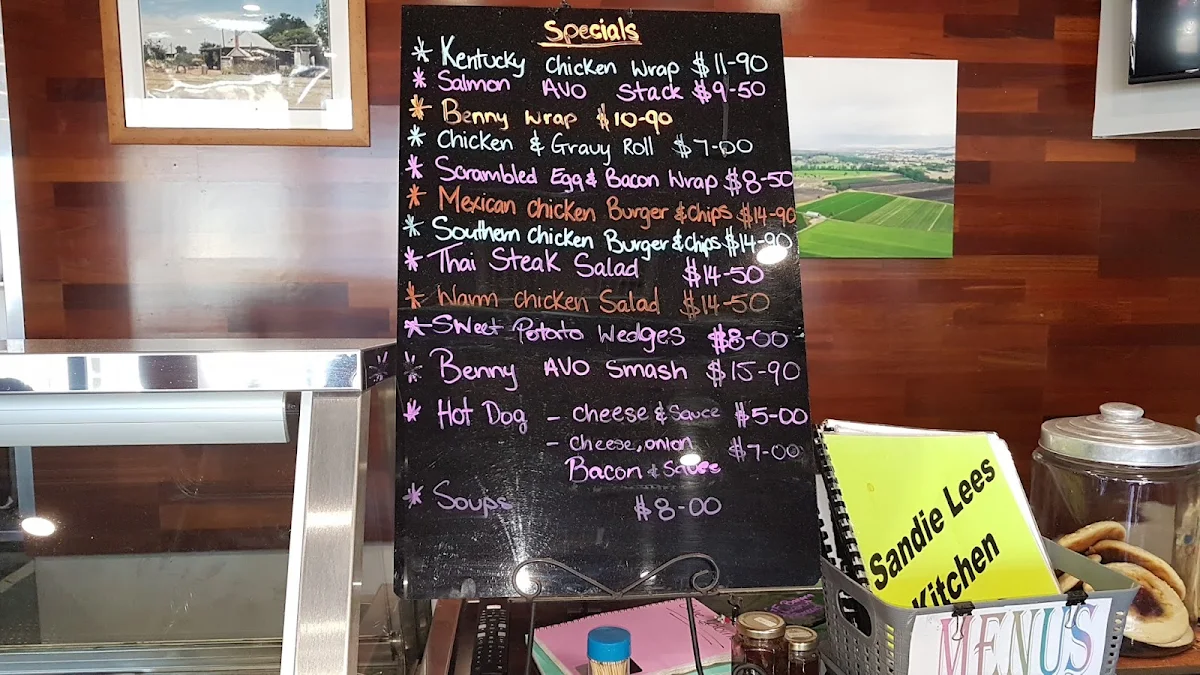 Specials
* Kentucky Chicken Wrap $11-90
* Salmon AVO Stack $9-50
* Benny Wrap $10-90
* Chicken & Gravy Roll $7-00
* Scrambled Egg & Bacon Wrap $8-50
* Mexican Chicken Burger & Chips $14-90
* Southern Chicken Burger & Chips $14-90
* Thai Steak Salad $14-50
* Warm Chicken Salad $14-50
* Sweet Potato Wedges $8-00
* Benny AVO Smash $15-90
* Hot Dog - cheese & Sauce $5-00
- cheese, onion $7-00
Bacon & Sauce
* Soups $8-00
Sandie Lees
Kitchen
MENU'S